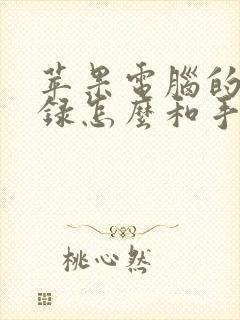 苹果電腦的
録怎麼和手
桃心然